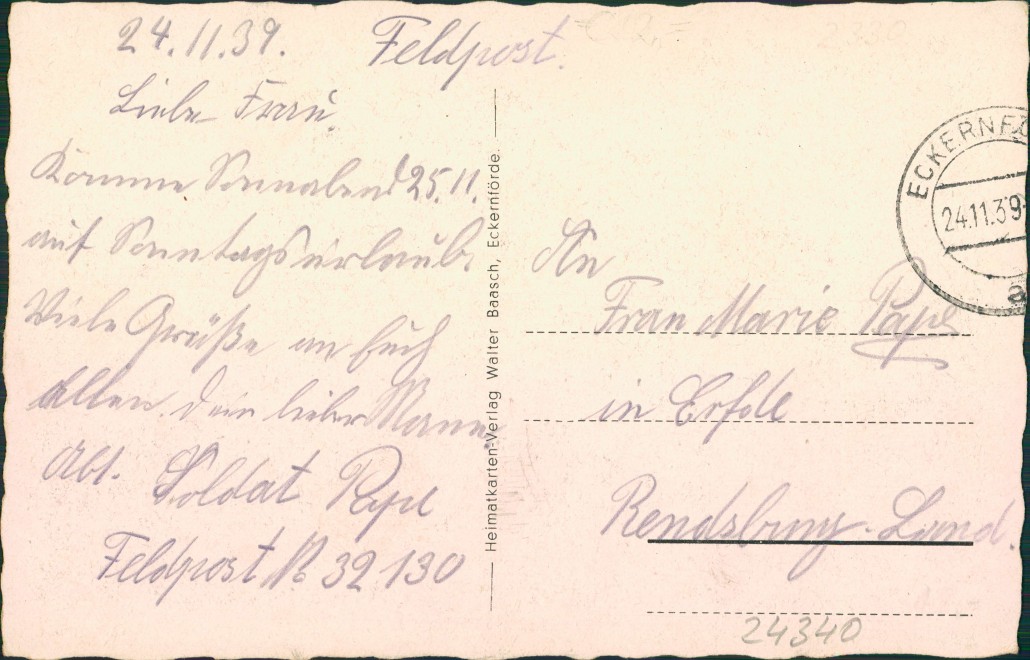 24.11.39.
Feldpost.
Liebe Frau
Komme Sonnabend 25.11.
auf Sonntagsurlaub.
Viele Grüße an Euch
allen. Dein lieber Mann
Abs. Soldat Pape
Feldpost N 32130
Heimatkarten-Verlag Walter Baasch, Eckernförde.
ECKERNF
24.11.39
a
An
Frau Marie Pape
in Erfde
Rendsburg-Land.
24340
2330